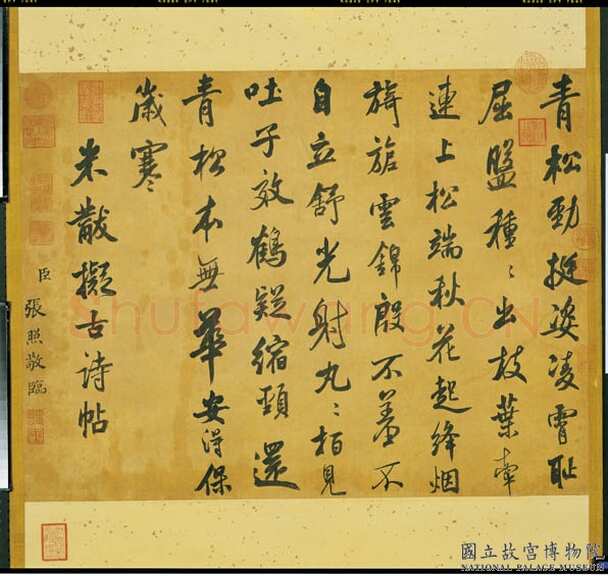 青松勁挺姿凌霄耻
屈盤種〻出枝葉牽
連上松端秋花起絳烟
旖旎雲錦殷不羞不
自立舒光射丸〻柏見
吐子效鶴疑縮頸還
青松本無華安得保
歲寒
米黻擬古詩帖
臣張照敬臨
Shufawang.CN
國立故宮博物院
NATIONAL PALACE MUSEUM